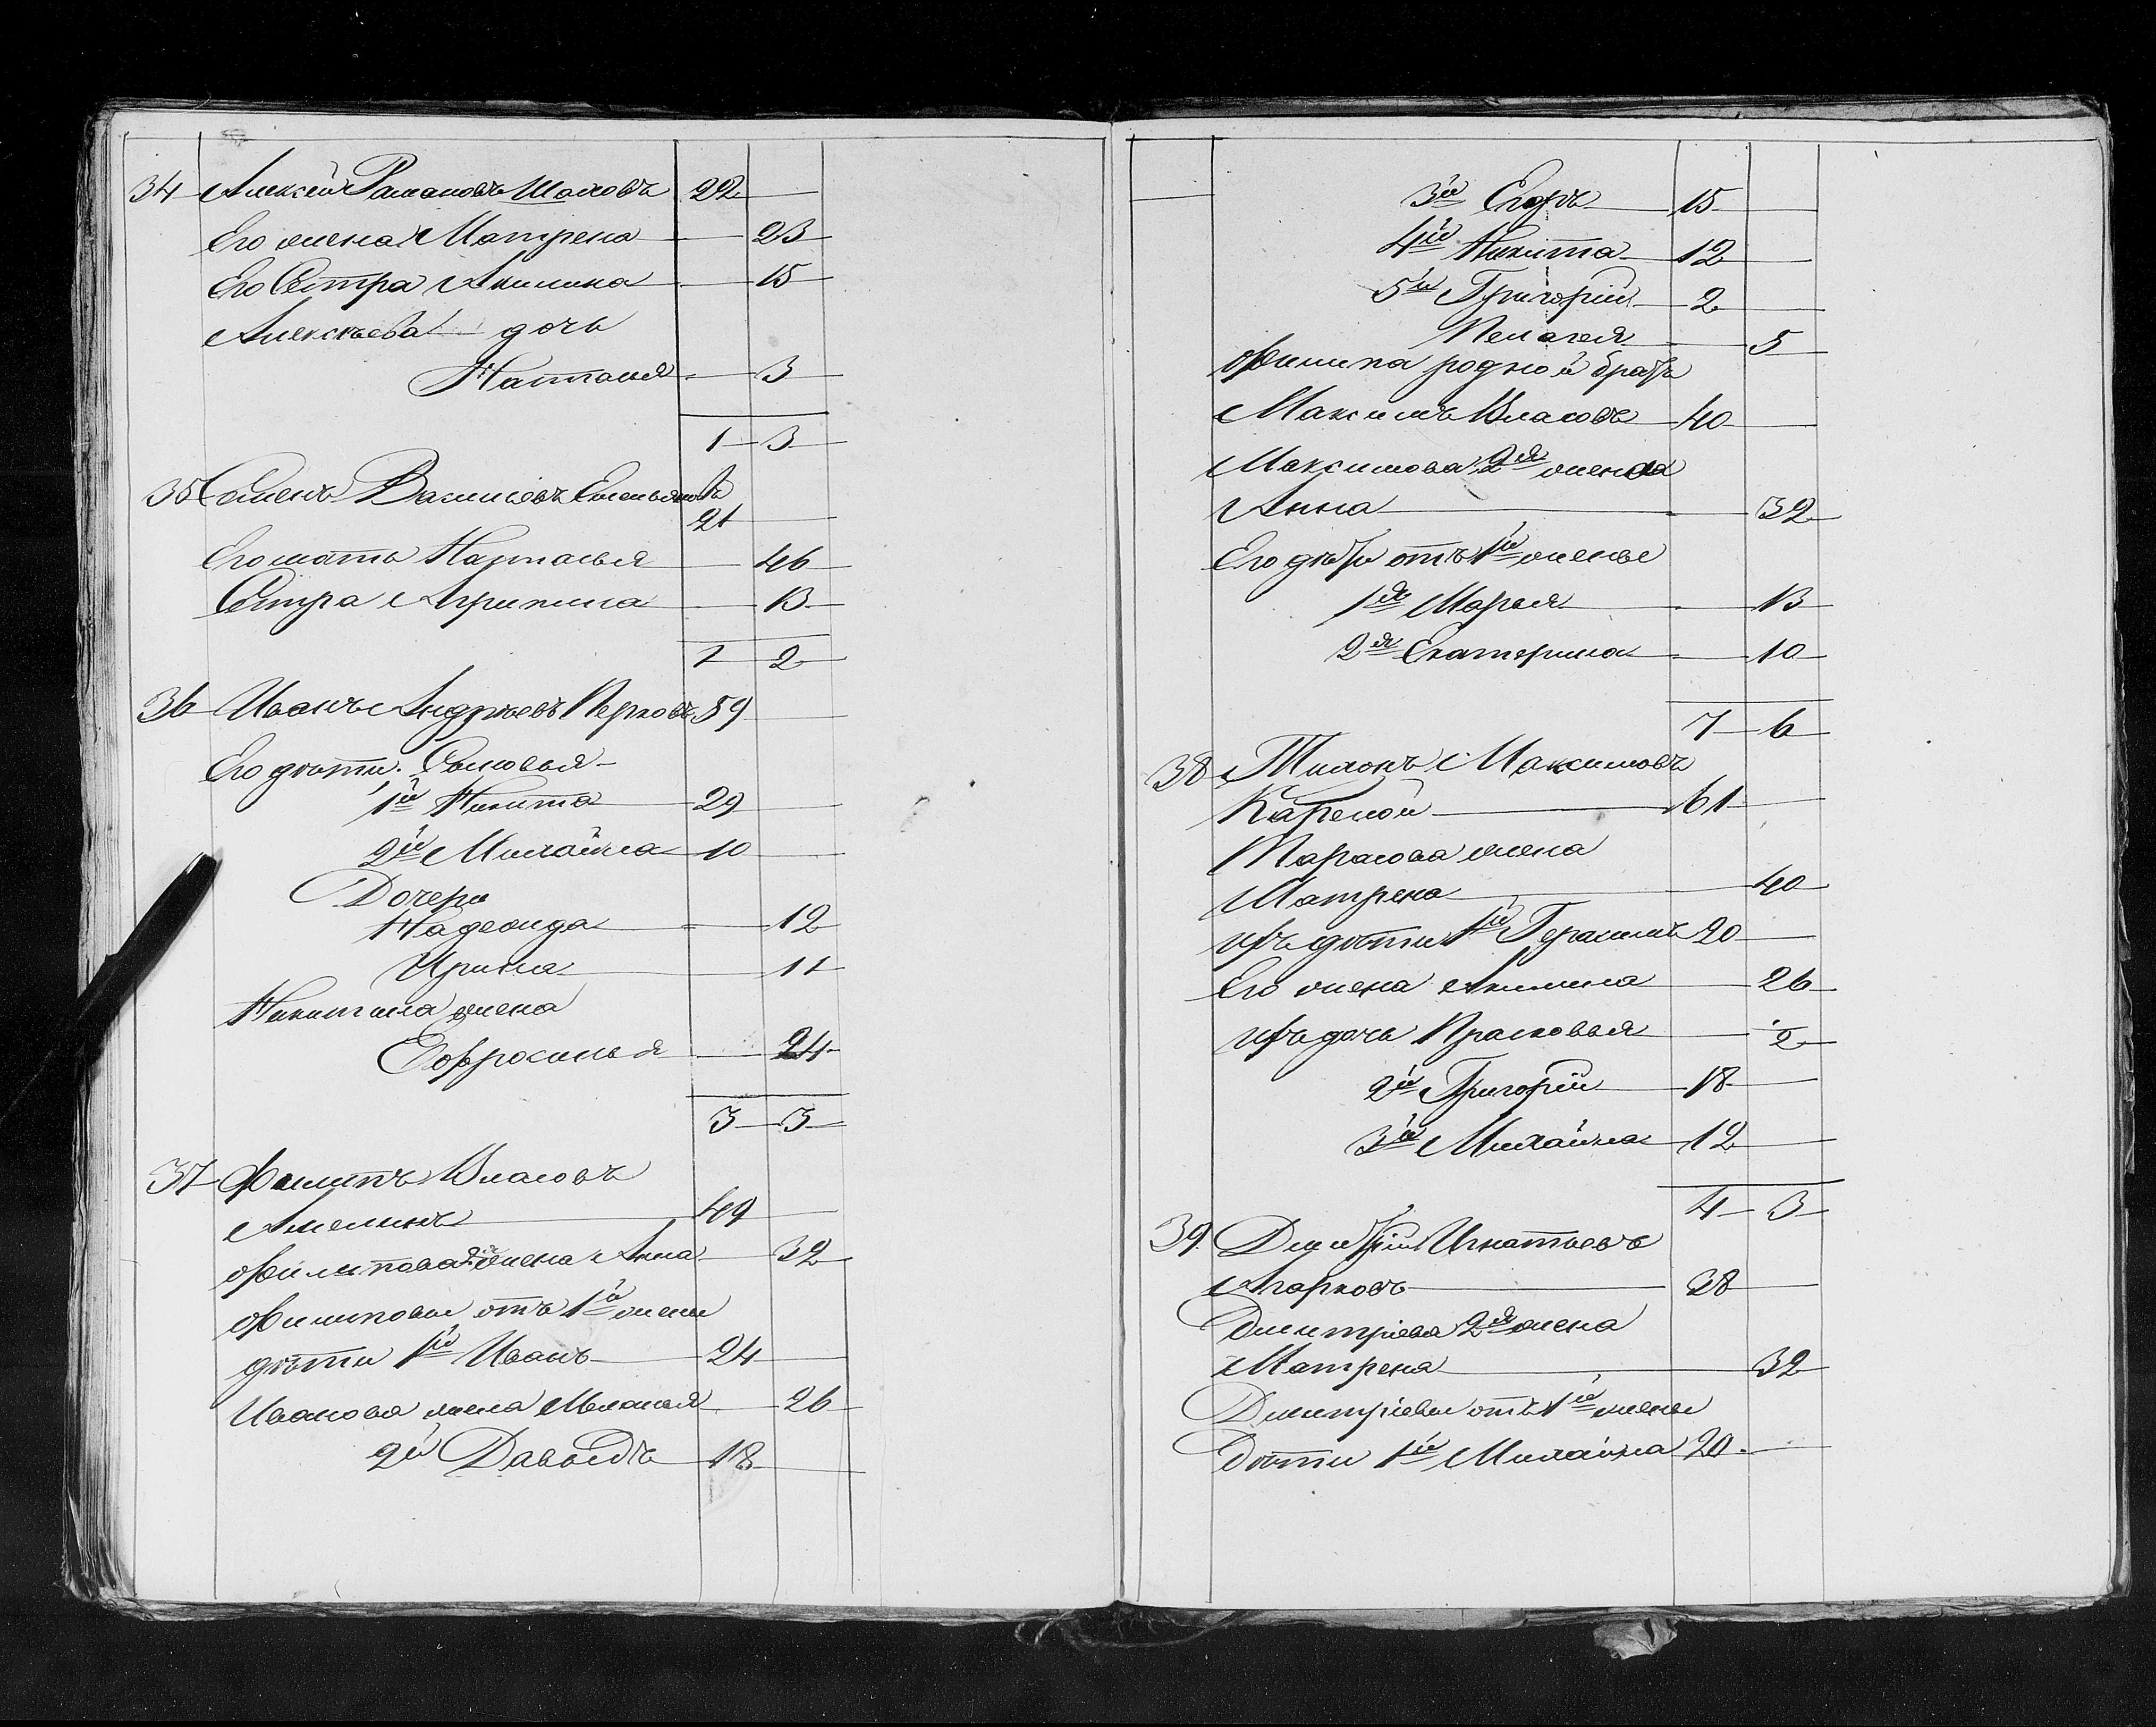 34 Алексей Рамановъ Шаховъ 22
Его жена Матрена 23
Его Сестра Акилина 15
Алексѣева дочь
Наталья 3
1 3
35 Семенъ Васильевъ Емельяновъ
21
Его мать Наталья 46
Сестра Агрипина 13
1 2
36 Иванъ Андрѣевъ Перковъ 59
Его дѣти. Сыновья
1й Никита 29
2й Михайла 10
Дочери
Надежда 12
Ирина 11
Никитина жена
Еофросинья 24
3 3
37 Филипъ Власовъ
Амелинъ 49
Филипова 2я жена Анна 32
Филиповы отъ 1й жены
дѣти 1й Иванъ 24
Иванова жена Меланья 26
2й Давыдъ 18
3й Егоръ 15
4й Никита 12
5й Григорій 2
Пелагея 5
Филипа родной братъ
Максимъ Власовъ 40
Максимова 2я жена
Анна 32
Его дѣти отъ 1й жены
1я Марья 13
2я Екатерина 10
7 6
38 Тихонъ Максимовъ
Карекой 61
Тарасова жена
Матрена 40
Ихъ дѣти 1й Герасимъ 20
Его жена Акилина 26
Ихъ дочь Прасковья 2
2й Григорій 18
3й Михайла 12
4 3
39. Дмитрій Игнатьевъ
Агарковъ 38
Дмитріева 2я жена
Матрена 32
Дмитріевы отъ 1й жены
Дѣти 1й Михайла 20